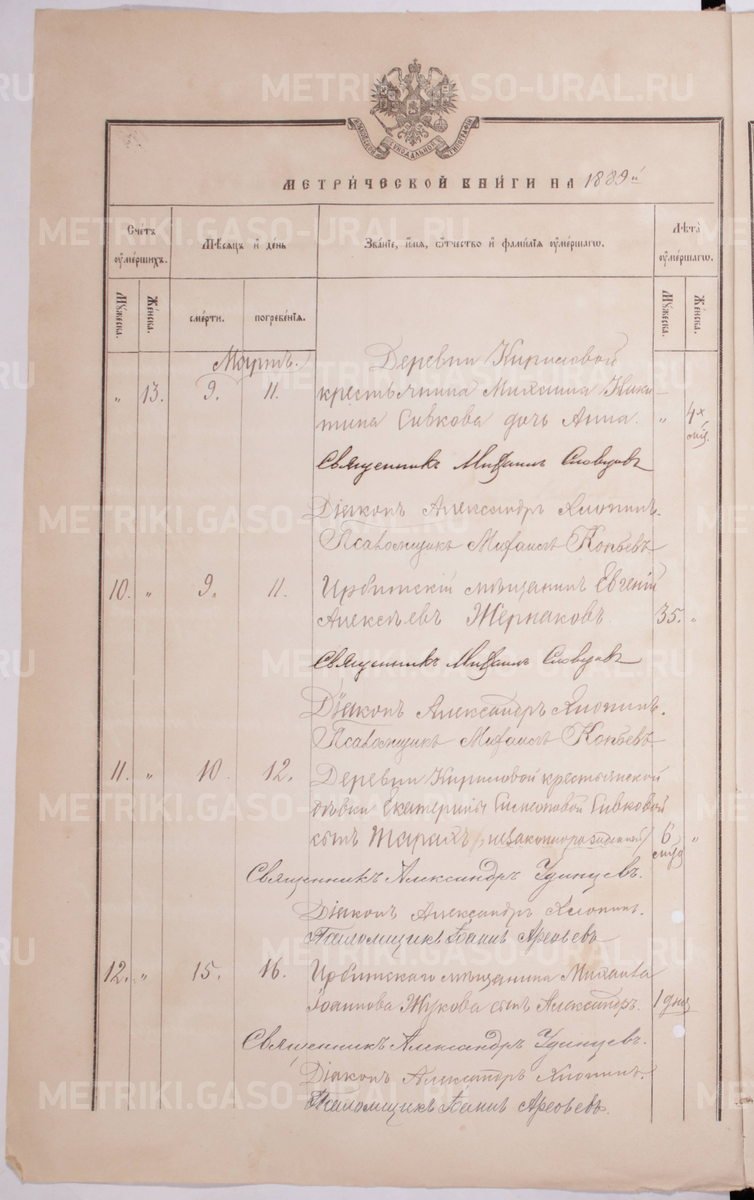 METRIKI.GASO-URAL.RU
МОСКОВСКОЙ СѴНОДАЛЬНОЙ ТИПОГРАФІИ
МЕТРИ́ЧЕСКОЙ КНИ́ГИ НА 1889й
Сче́тъ ᲂумершихъ.
Мѣсяцъ и҆ де́нь
Зва́нїе, и҆́мя, ѻ҆́тчество и҆ фами́лїя ᲂумершагѡ.
Лѣта̀ ᲂумершагѡ.
Му́жеска.
Же́нска.
сме́рти.
погребе́нїя.
Му́жеска.
Же́нска.
Мартъ.
Деревни Кириловой
„ 13. 9. 11. крестьянина Михаила Ники-
тина Сивкова дочь Анна. „ 4х
Священникъ Михаилъ Словцовъ
Діаконъ Александръ Хлопинъ.
Псаломщикъ Михаилъ Копьевъ
10. „ 9. 11. Ирбитскій мѣщанинъ Евгеній
Алексѣевъ Жернаковъ. 35. „
Священникъ Михаилъ Словцовъ
Діаконъ Александръ Хлопинъ.
Псаломщикъ Михаилъ Копьевъ
11. „ 10. 12. Деревни Кириловой крестьянской
дѣвки Екатерины Симеоновой Сивковой
сынъ Тарахъ (незаконнорожденный) 6 „
Священникъ Александръ Удинцевъ.
Діаконъ Александръ Хлопинъ.
Псаломщикъ Іоаннъ Арефьевъ
12. „ 15. 16. Ирбитскаго мѣщанина Михаила
Іоаннова Жукова сынъ Александръ. 1 дня
Священникъ Александръ Удинцевъ.
Діаконъ Александръ Хлопинъ.
Псаломщикъ Іоаннъ Арефьевъ.